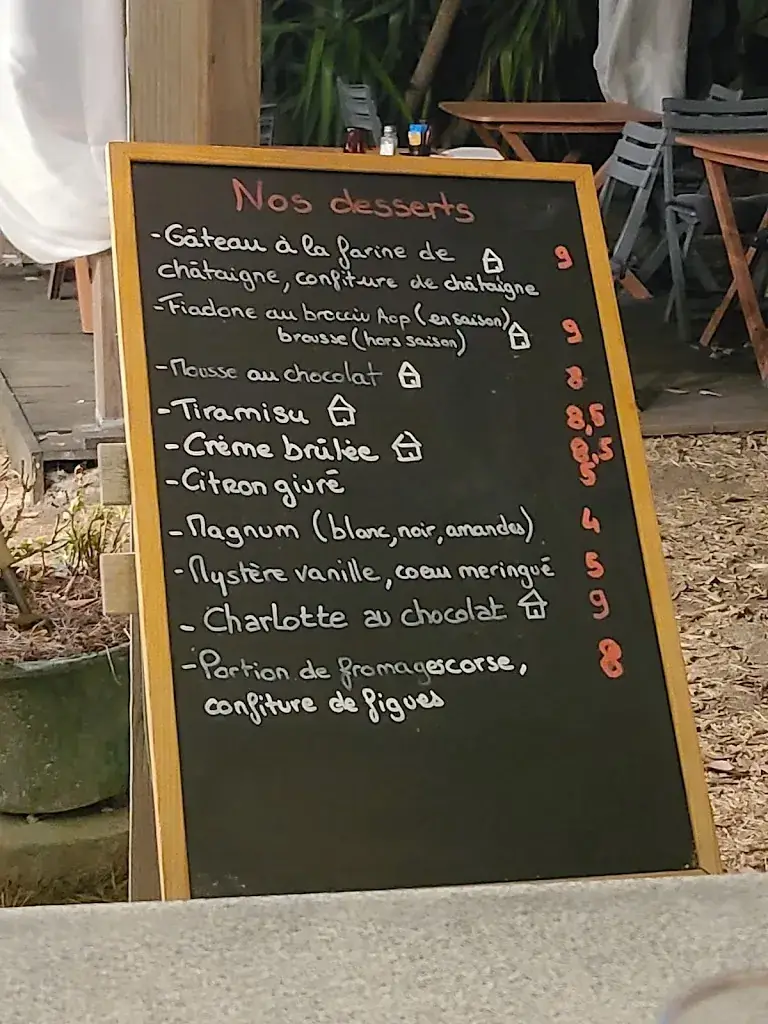 Nos desserts
-Gâteau à la farine de 9
châtaigne, confiture de châtaigne
-Fiadone au brocciu Aop (en saison)
brousse (hors saison) 9
-Mousse au chocolat 8
-Tiramisu 8,5
-Crème brûlée 8,5
-Citron givré 5
-Magnum (blanc, noir, amandes) 4
-Mystère vanille, coeu meringué 5
-Charlotte au chocolat 9
-Portion de fromagescorse, 8
confiture de figues